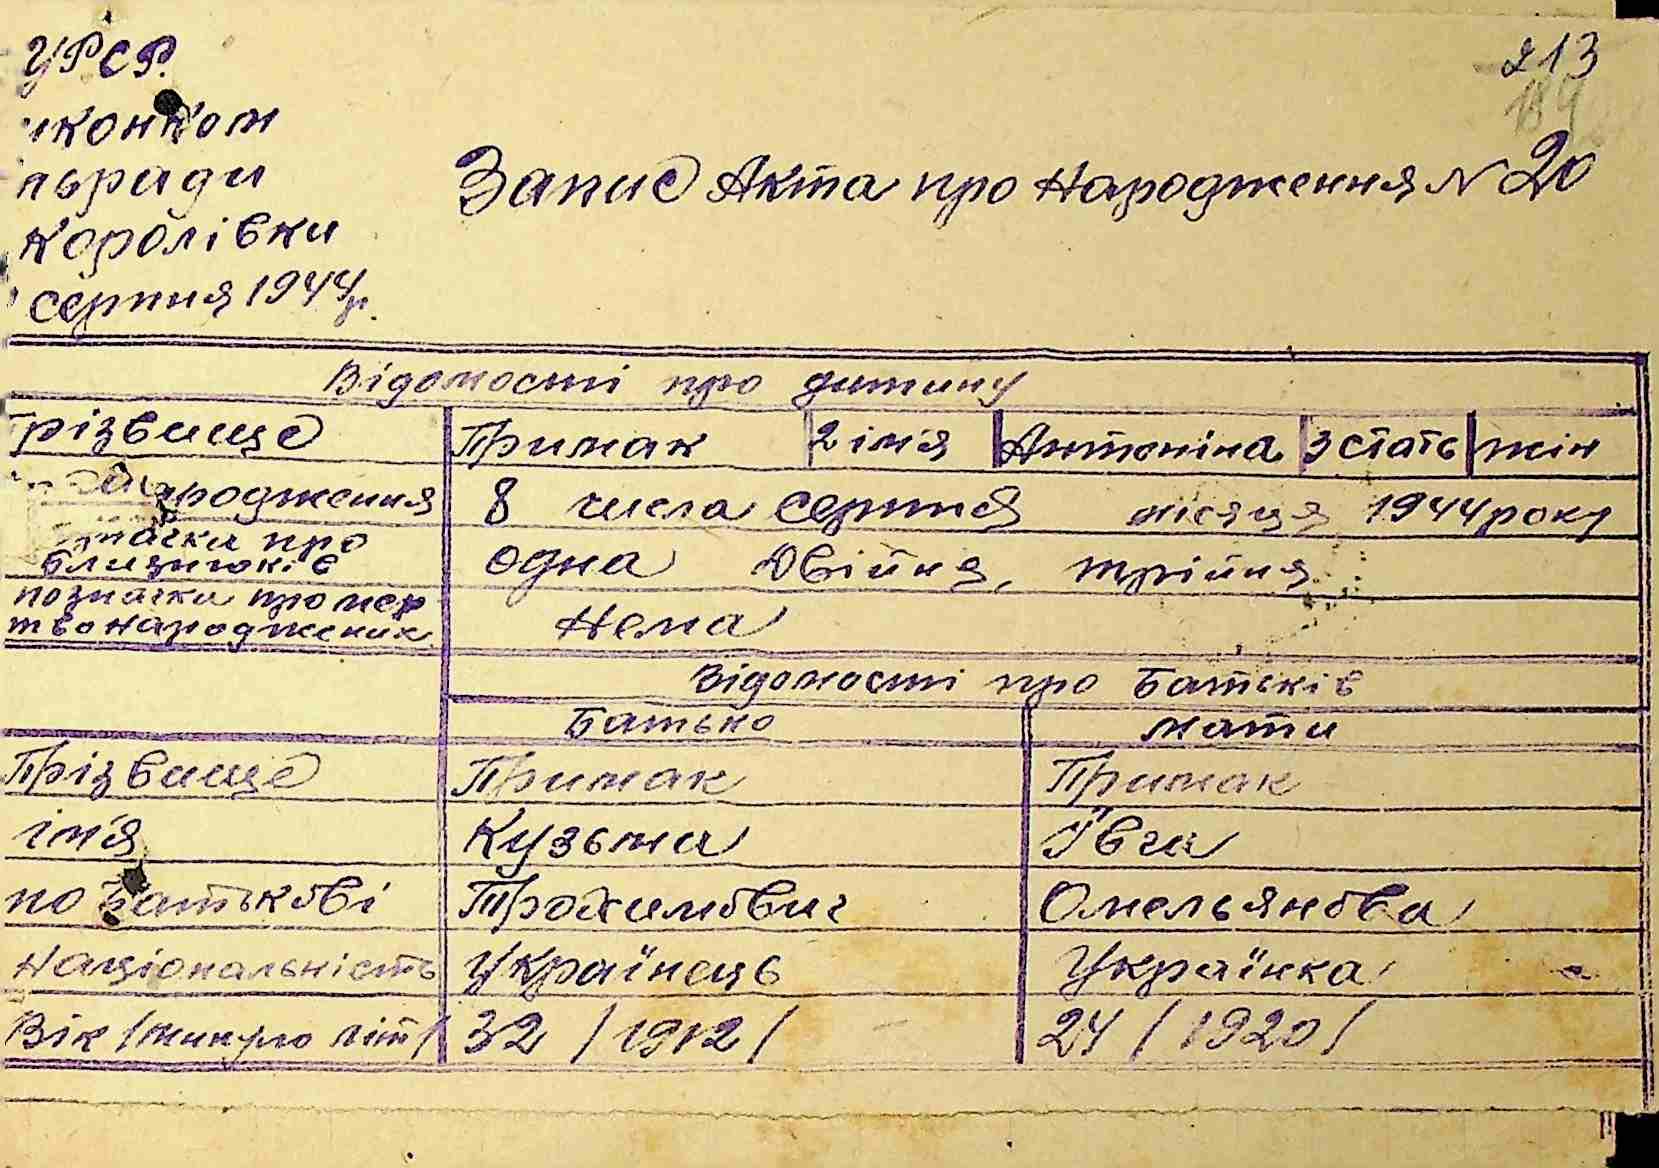 УРСР.
иконком
льради
Королівки
серпня 1944р.
213
189
Запис Акта про Народження N 20
Відомості про дитину
Прізвище Примак 2 імя Антоніна 3 стать жін
народження 8 числа серпня місяця 1944 року
про близнюків одна двійня, трійня
позначки про мертвонароджених Нема
Відомості про Батьків
Батько мати
Прізвище Примак Примак
імя Кузьма Ївга
по Батькові Трохимович Омельянова
Національність Українець Українка
Вік /минуло літ/ 32 /1912/ 24 /1920/